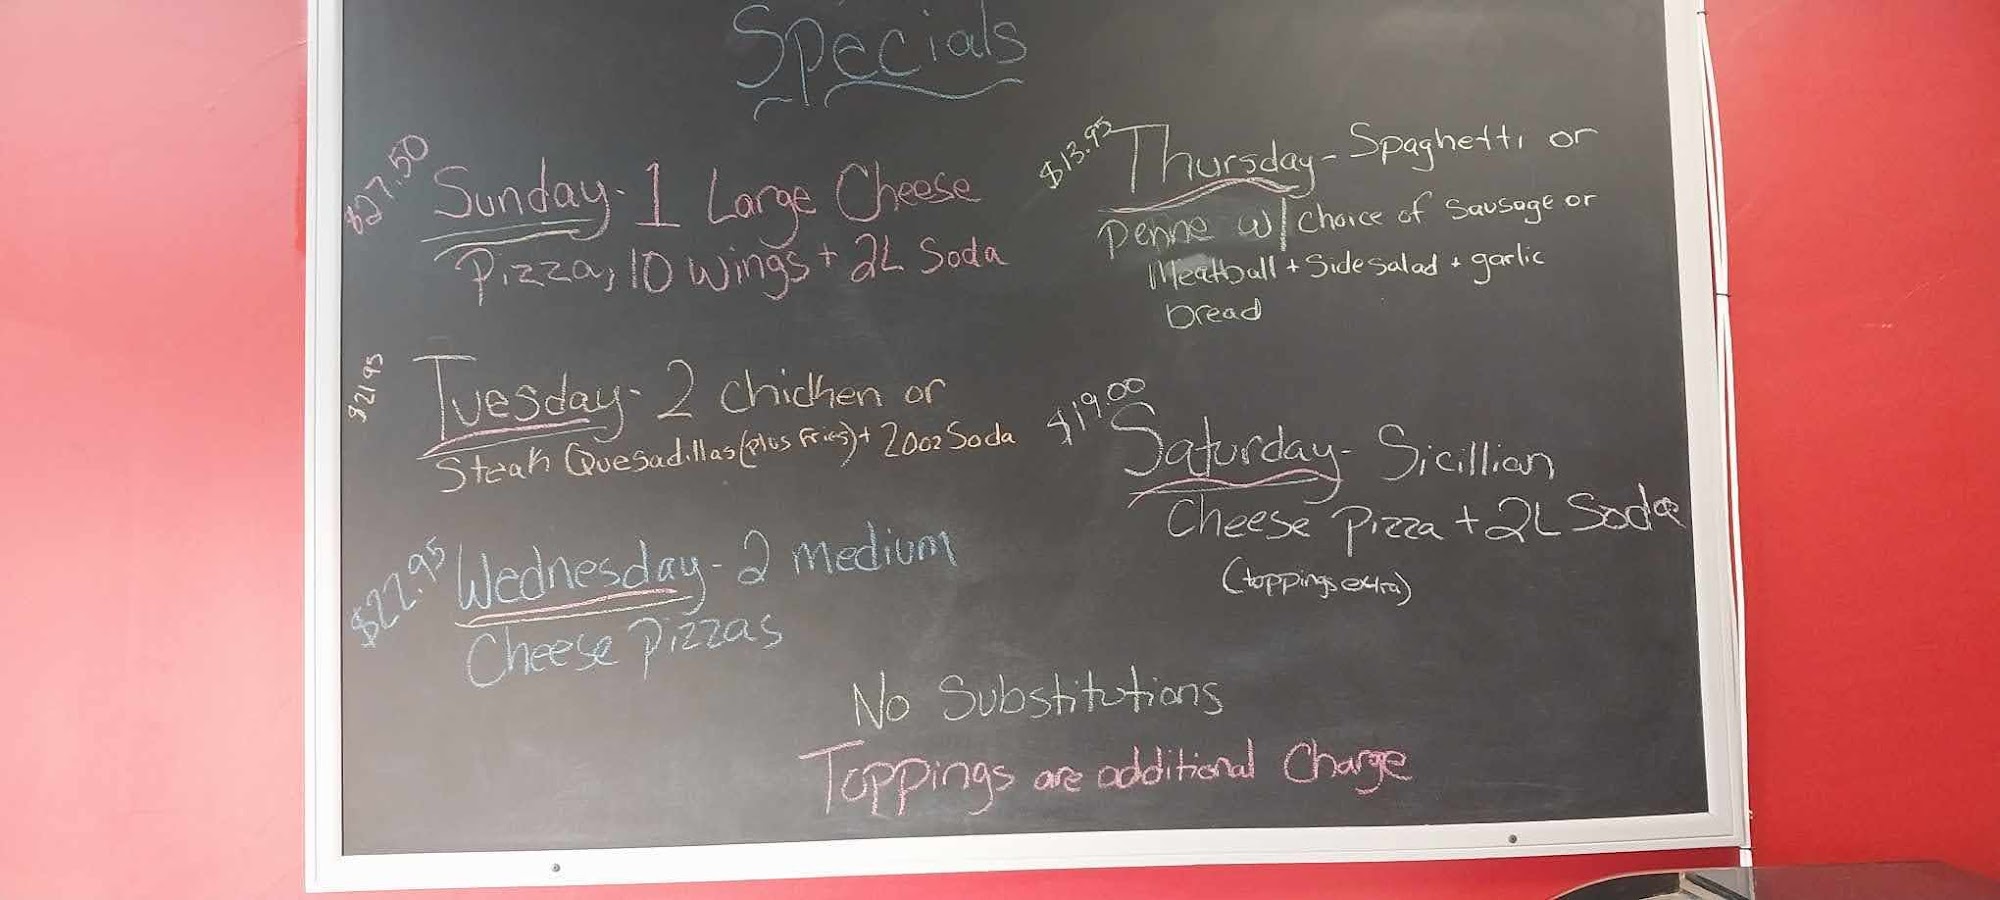 Specials
$27.50
Sunday - 1 Large Cheese
Pizza, 10 wings + 2L Soda
$21.95
Tuesday - 2 chicken or
Steak Quesadillas (plus fries) + 20oz Soda
$22.95
Wednesday - 2 medium
Cheese Pizzas
$13.95
Thursday - Spaghetti or
penne w/ choice of sausage or
Meatball + Side salad + garlic
bread
$19.00
Saturday - Sicillian
Cheese Pizza + 2L Soda
(toppings extra)
No Substitutions
Toppings are additional Charge